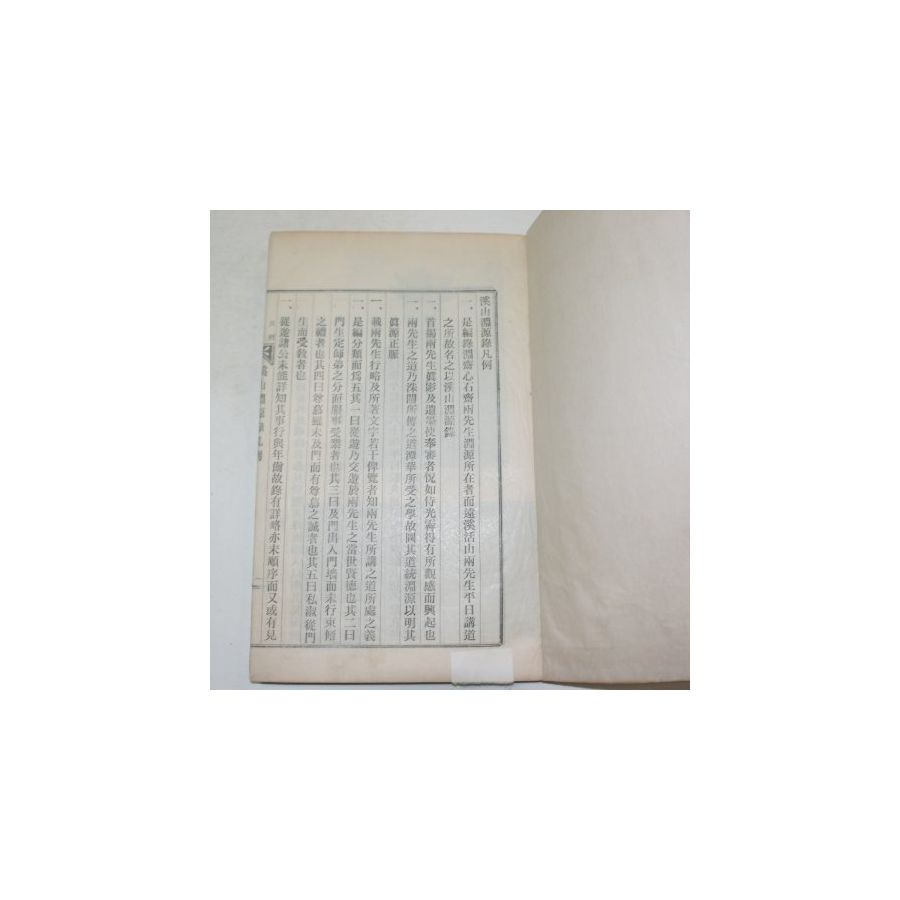 溪山淵源錄凡例
一、是編錄淵齋心石齋兩先生淵源所在者而遠溪活山兩先生平日講道
之所故名之以溪山淵源錄
一、首揭兩先生眞影及遺墨使奉審者怳如侍光霽得有所觀感而興起也
一、兩先生之道乃洙閩所傳之道潭華所受之學故圖其道統淵源以明其
眞源正脈
一、載兩先生行略及所著文字若干俾覽者知兩先生所講之道所處之義
一、是編分類而爲五其一曰從遊乃交遊於兩先生之當世賢德也其二曰
門生定師弟之分而服事受業者也其三曰及門出入門墻而未行束脩
之禮者也其四曰尊慕雖未及門而有尊慕之誠者也其五曰私淑從門
生而受敎者也
一、從遊諸公未能詳知其事行與年爵故錄有詳略亦未順序而又或有見
溪山淵源錄凡例